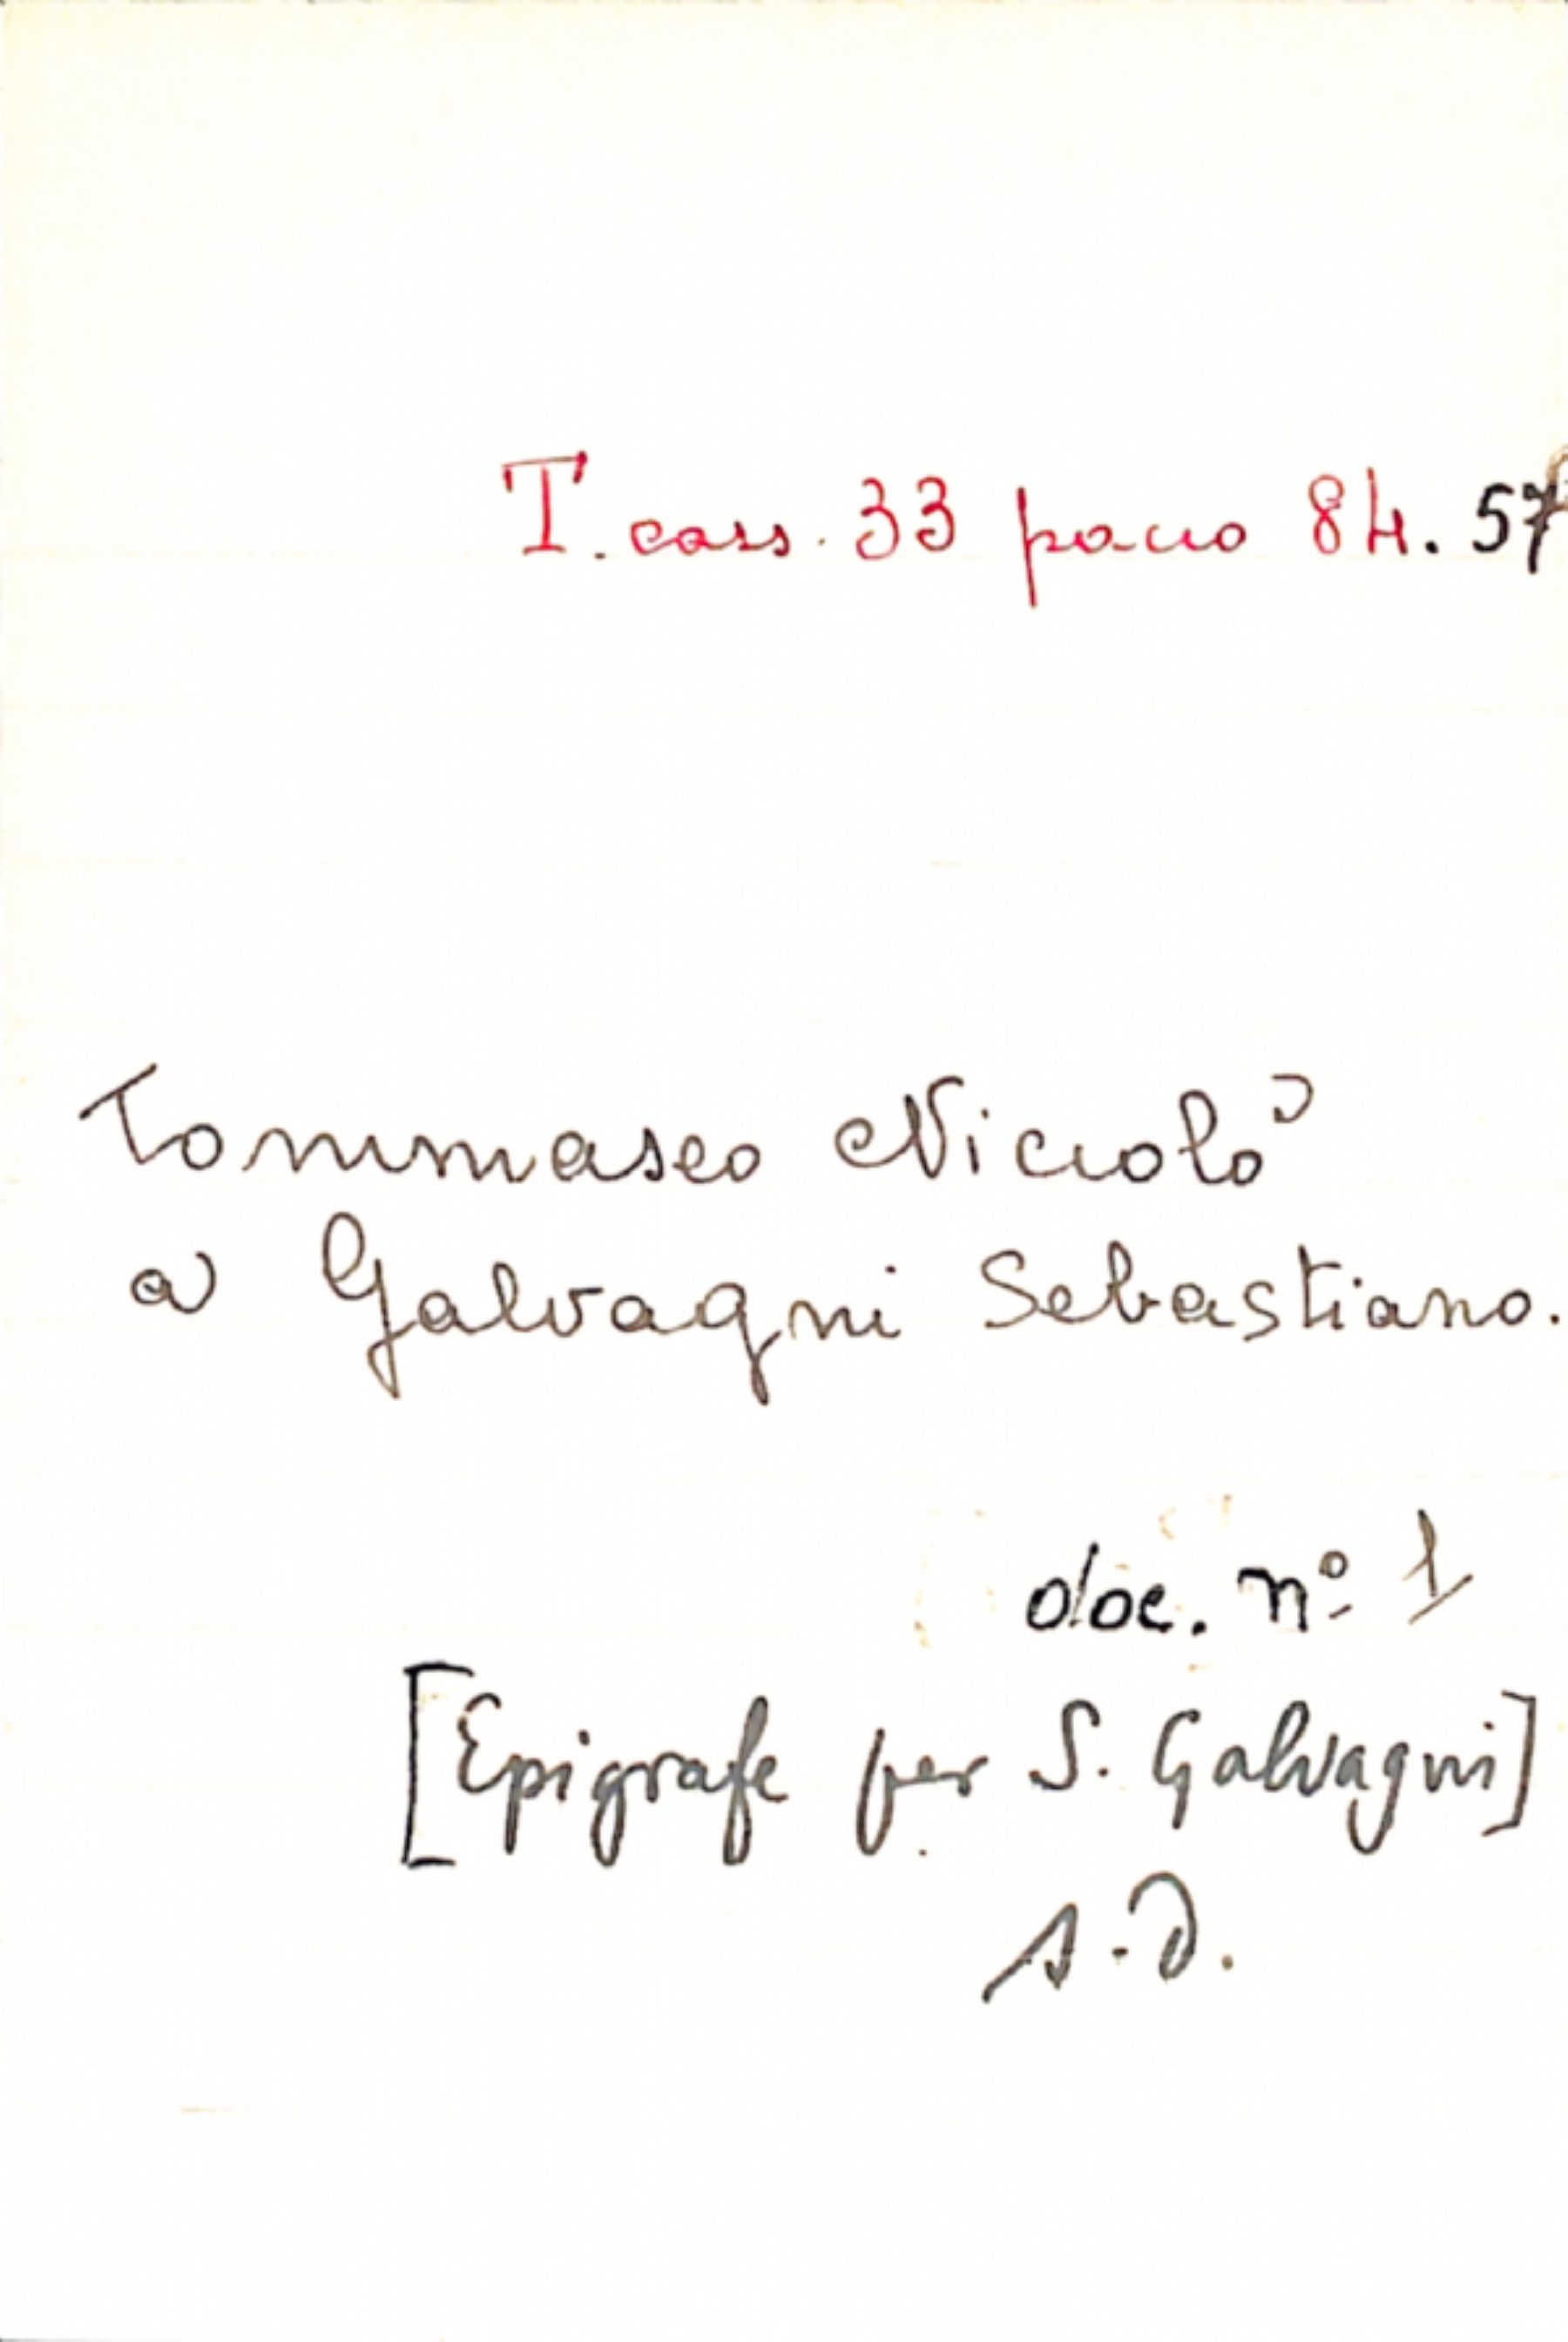 T. cass. 33 pacco 84. 57
Tommaseo Niccolò
a Galvagni Sebastiano.
doc. nº 1
[Epigrafe per S. Galvagni]
s.d.